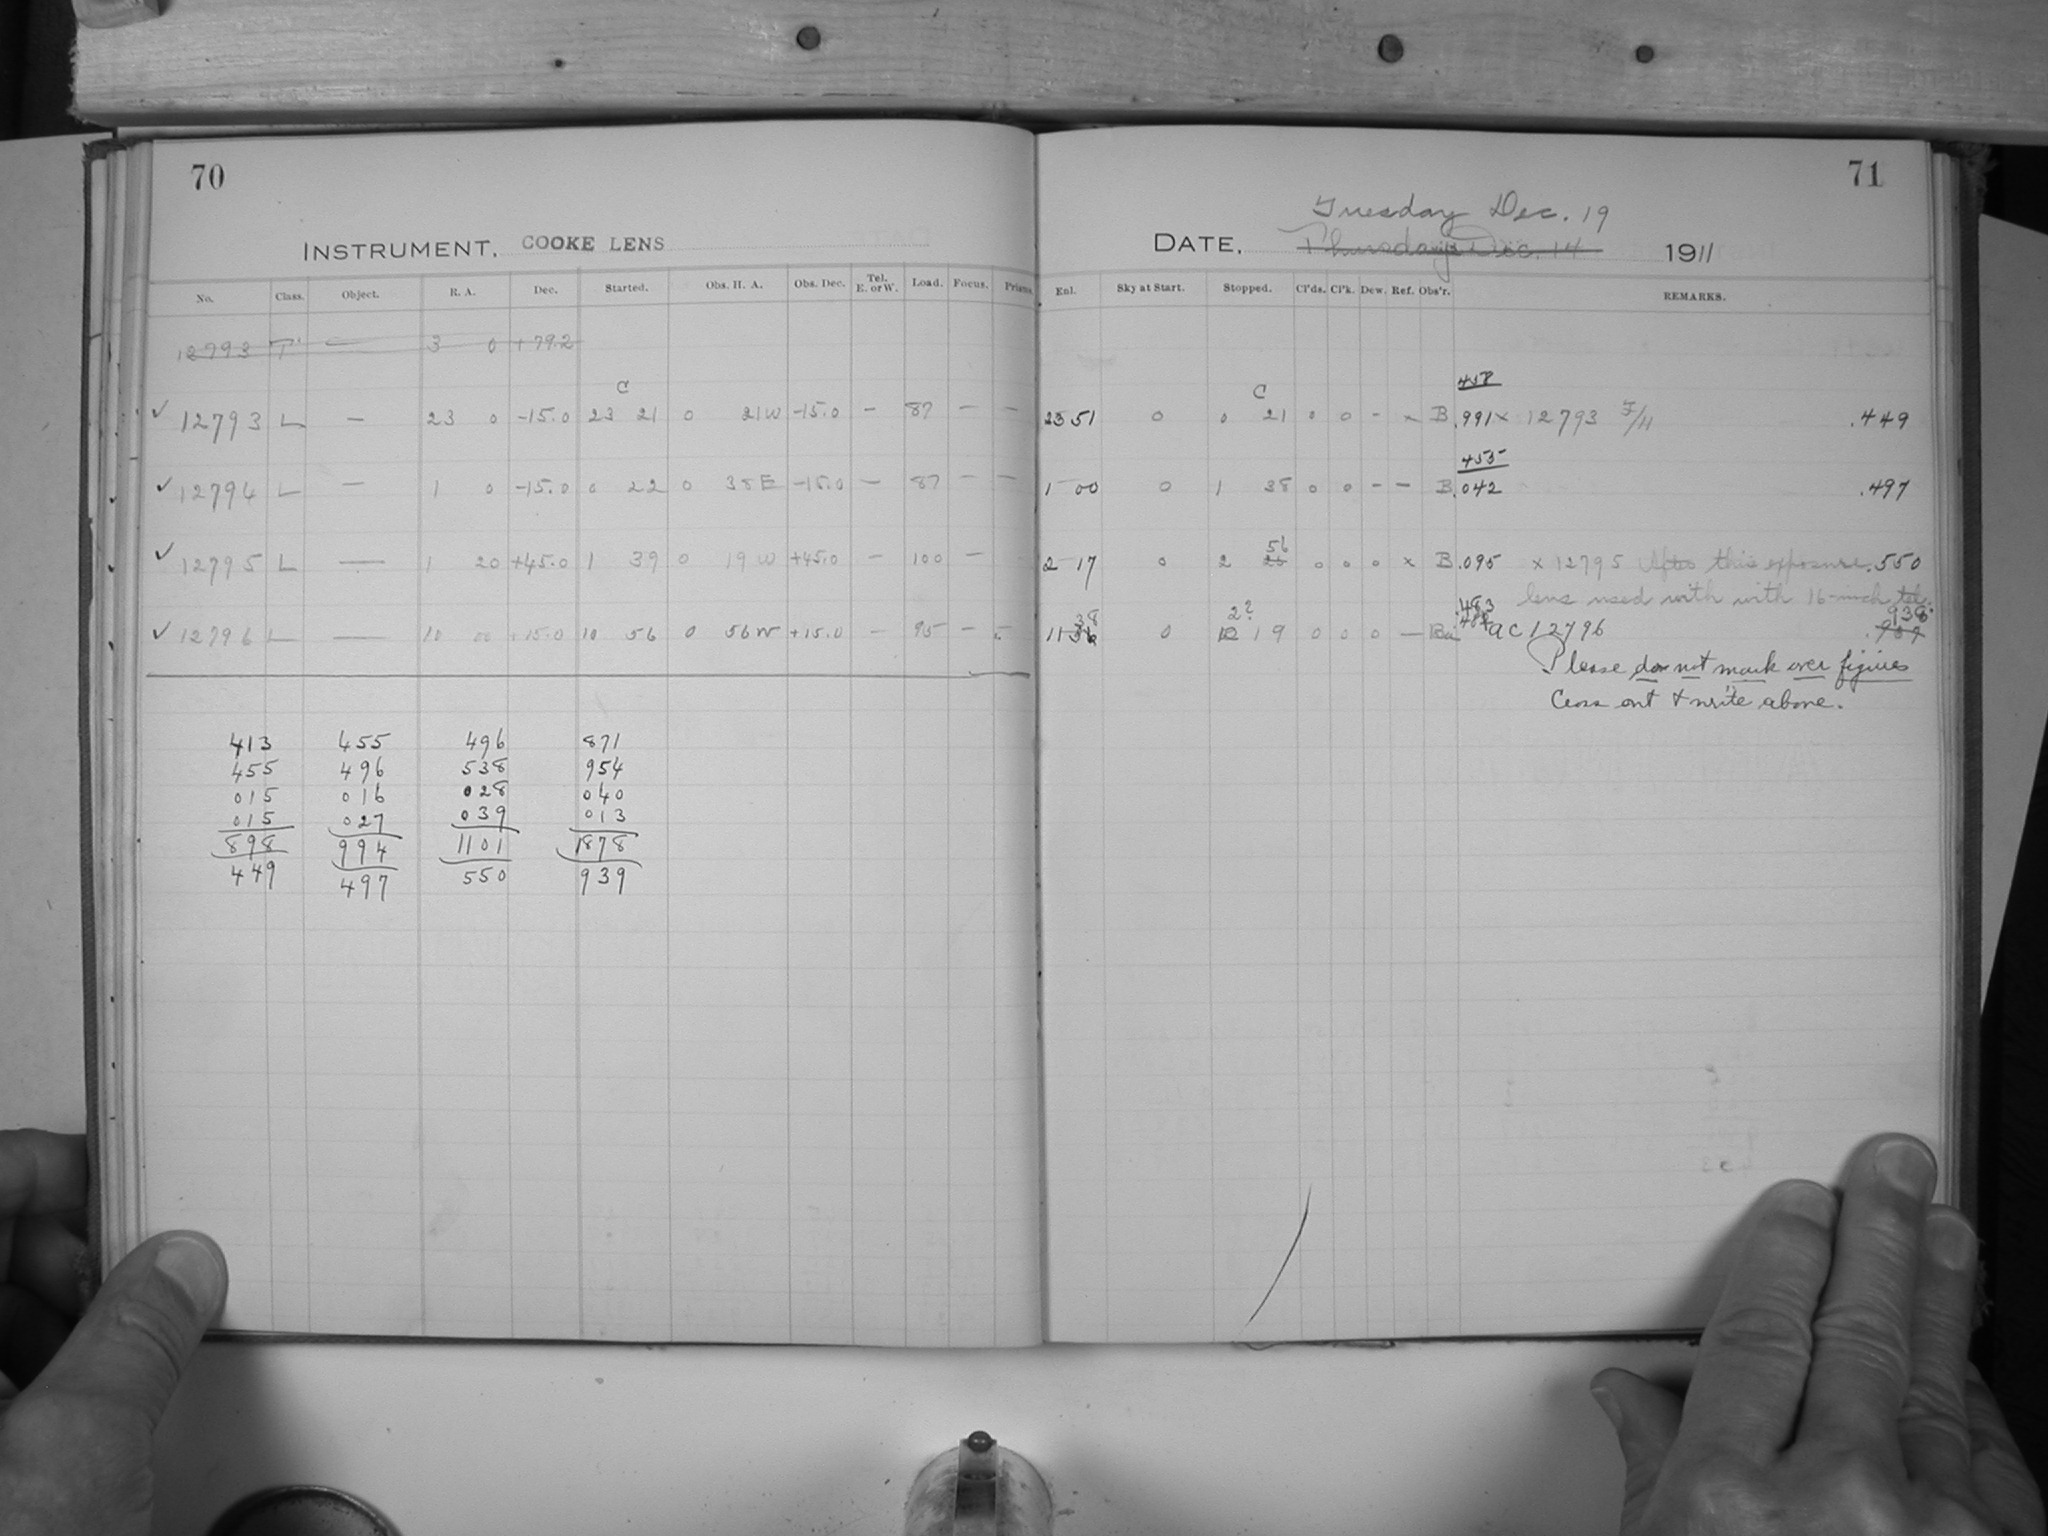 70
INSTRUMENT, COOKE LENS
No. Class. Object. R. A. Dec. Started. Obs. H. A. Obs. Dec. Tel. E. or W. Load. Focus. Prisms.
12793 T — 3 0 +79.2
C
✓ 12793 L — 23 0 -15.0 23 21 0 21W -15.0 — 87 — —
✓ 12794 L — 1 0 -15.0 0 22 0 38E -15.0 — 87 — —
✓ 12795 L — 1 20 +45.0 1 39 0 19W +45.0 — 100 —
✓ 12796 L — 10 00 +15.0 10 56 0 56W +15.0 — 95 — —
413 455 496 871
455 496 538 954
015 016 028 040
015 027 039 013
898 994 1101 1878
449 497 550 939
71
Tuesday Dec. 19
DATE, Thursday Dec. 14 1911
Enl. Sky at Start. Stopped. Cl'ds. Cl'k. Dew. Ref. Obs'r. REMARKS.
C
23 51 0 0 21 0 0 - x B .991 x 12793 .449
455
1 00 0 1 38 0 0 - - B .042 .497
56
2 17 0 2 0 0 0 x B .095 x 12795 After this exposure .550
lens used with with 16-inch tel.
38 2? .483 938
11 36 0 12 19 0 0 0 — ac 12796
Please do not mark over figures
Cross out & write above.